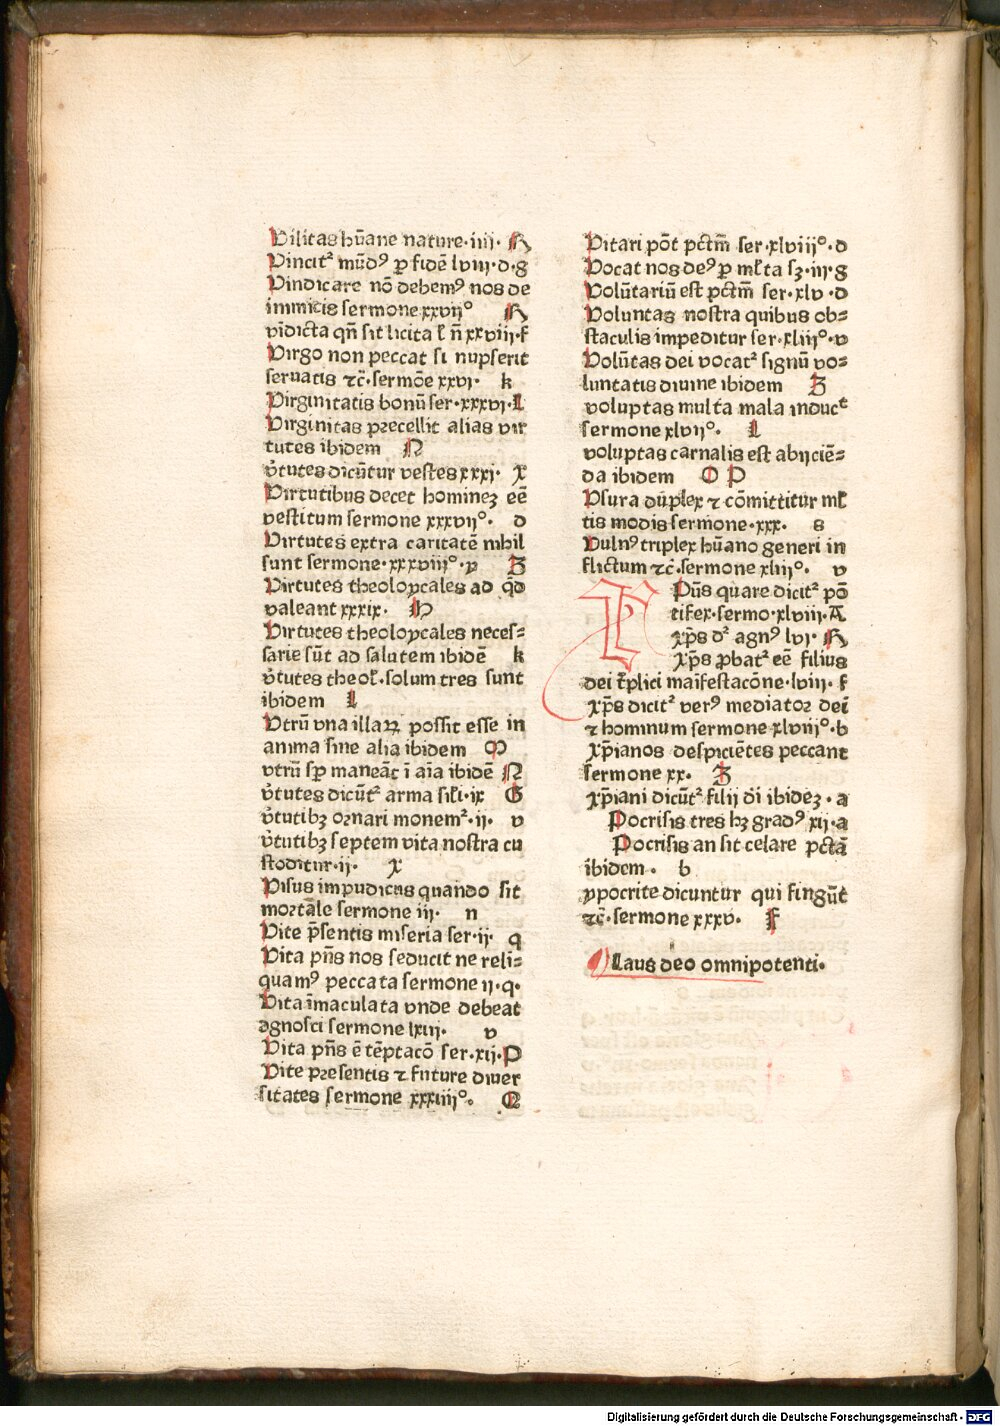 Vilitas hūane nature·iiii· K
Vincitᷣ mūdꝰ ꝑ fidē lviii·d·g
Vindicare nō debemꝰ nos de
immicis sermone xxvii° K
vīdicta qn̄ sit licita ł n̄ xxviii·f
Virgo non peccat si nupserit
seruatis ⁊c̄·sermōe xxvi· k
Virginitatis bonū ser·xxxvi·L
Virginitas precellit alias vir
tutes ibidem N
v̄tutes dicūtur vestes xxxi· x
Virtutibus decet hominez eē
vestitum sermone xxxvii°· d
Virtutes extra caritatē nihil
sunt sermone·xxxviii°·p B
Virtutes theoloycales ad q̄d
valeant xxxix· H
Virtutes theoloycales neces⸗
sarie sūt ad salutem ibidē k
v̄tutes theoł·solum tres sunt
ibidem L
Vtrū vna illaꝝ possit esse in
anima sine alia ibidem M
vtrū sꝑ maneāt ī aīa ibidē N
v̄tutes dicūtᷣ arma sił·ix G
v̄tutibꝫ ornari monemᷣ·ii· v
v̄tutibꝫ septem vita nostra cu
stoditur·ii· x
Visus impudicus quando sit
mortale sermone iii· n
Vite p̄sentis miseria ser·ii· q
Vita pn̄s nos seducit ne reli⸗
quamꝰ peccata sermone ii·q·
Vita īmaculata vnde debeat
agnosci sermone lxiii· v
Vita pn̄s ē tēptacō ser·xii·P
Vite presentis ⁊ future diuer
sitates sermone xxxiiii°· Q
Vitari pōt pctm̄ ser·xlviii°·d
Vocat nos deꝰ ꝑ młta sꝫ·iii·g
Volūtariū est pctm̄ ser·xlv·d
Voluntas nostra quibus ob⸗
staculis impeditur ser·xliii°·v
Volūtas dei vocatᷣ signū vo⸗
luntatis diuine ibidem B
voluptas multa mala inducᵗ
sermone xlvii°· L
voluptas carnalis est abijciē⸗
da ibidem O P
Vsura dūplex ⁊ cōmittitur mł
tis modis sermone·xxx· s
Vulnꝰ triplex hūano generi in
flictum ⁊c̄·sermone xliii°· v
Pn̄s quare dicitᷣ pō
tifex·sermo·xlviii·A
xp̄s dᷣ agnꝰ lvi· K
xp̄s ꝓbatᷣ eē filius
dei tp̄lici maīfestacōne·lviii·f
xp̄s dicitᷣ verꝰ mediator dei
⁊ hominum sermone xlviii°·b
xp̄ianos despiciētes peccant
sermone xx· B
xp̄iani dicūtᷣ filij di ibidez·a
Pocrisis tres hꝫ gradꝰ xij·a
Pocrisis an sit celare pctā
ibidem· b
ypocrite dicuntur qui fingūt
⁊c̄·sermone xxxv· F
Laus deo omnipotenti·
Digitalisierung gefördert durch die Deutsche Forschungsgemeinschaft - DFG